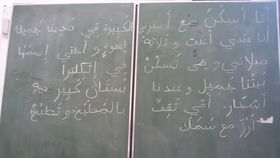 أنا أسكن مع أسرتي الكبيرة في مدينة جميلة
أنا عندي أخت و ثلاثة إخوة و أختي اسمها
ميلاني و هي تسكن في إنكلترا
بيتنا جميل و عندنا بستان كبير فيه
أشجار. أمي تقف بالمطبخ و تطبخ
أرز مع سمك